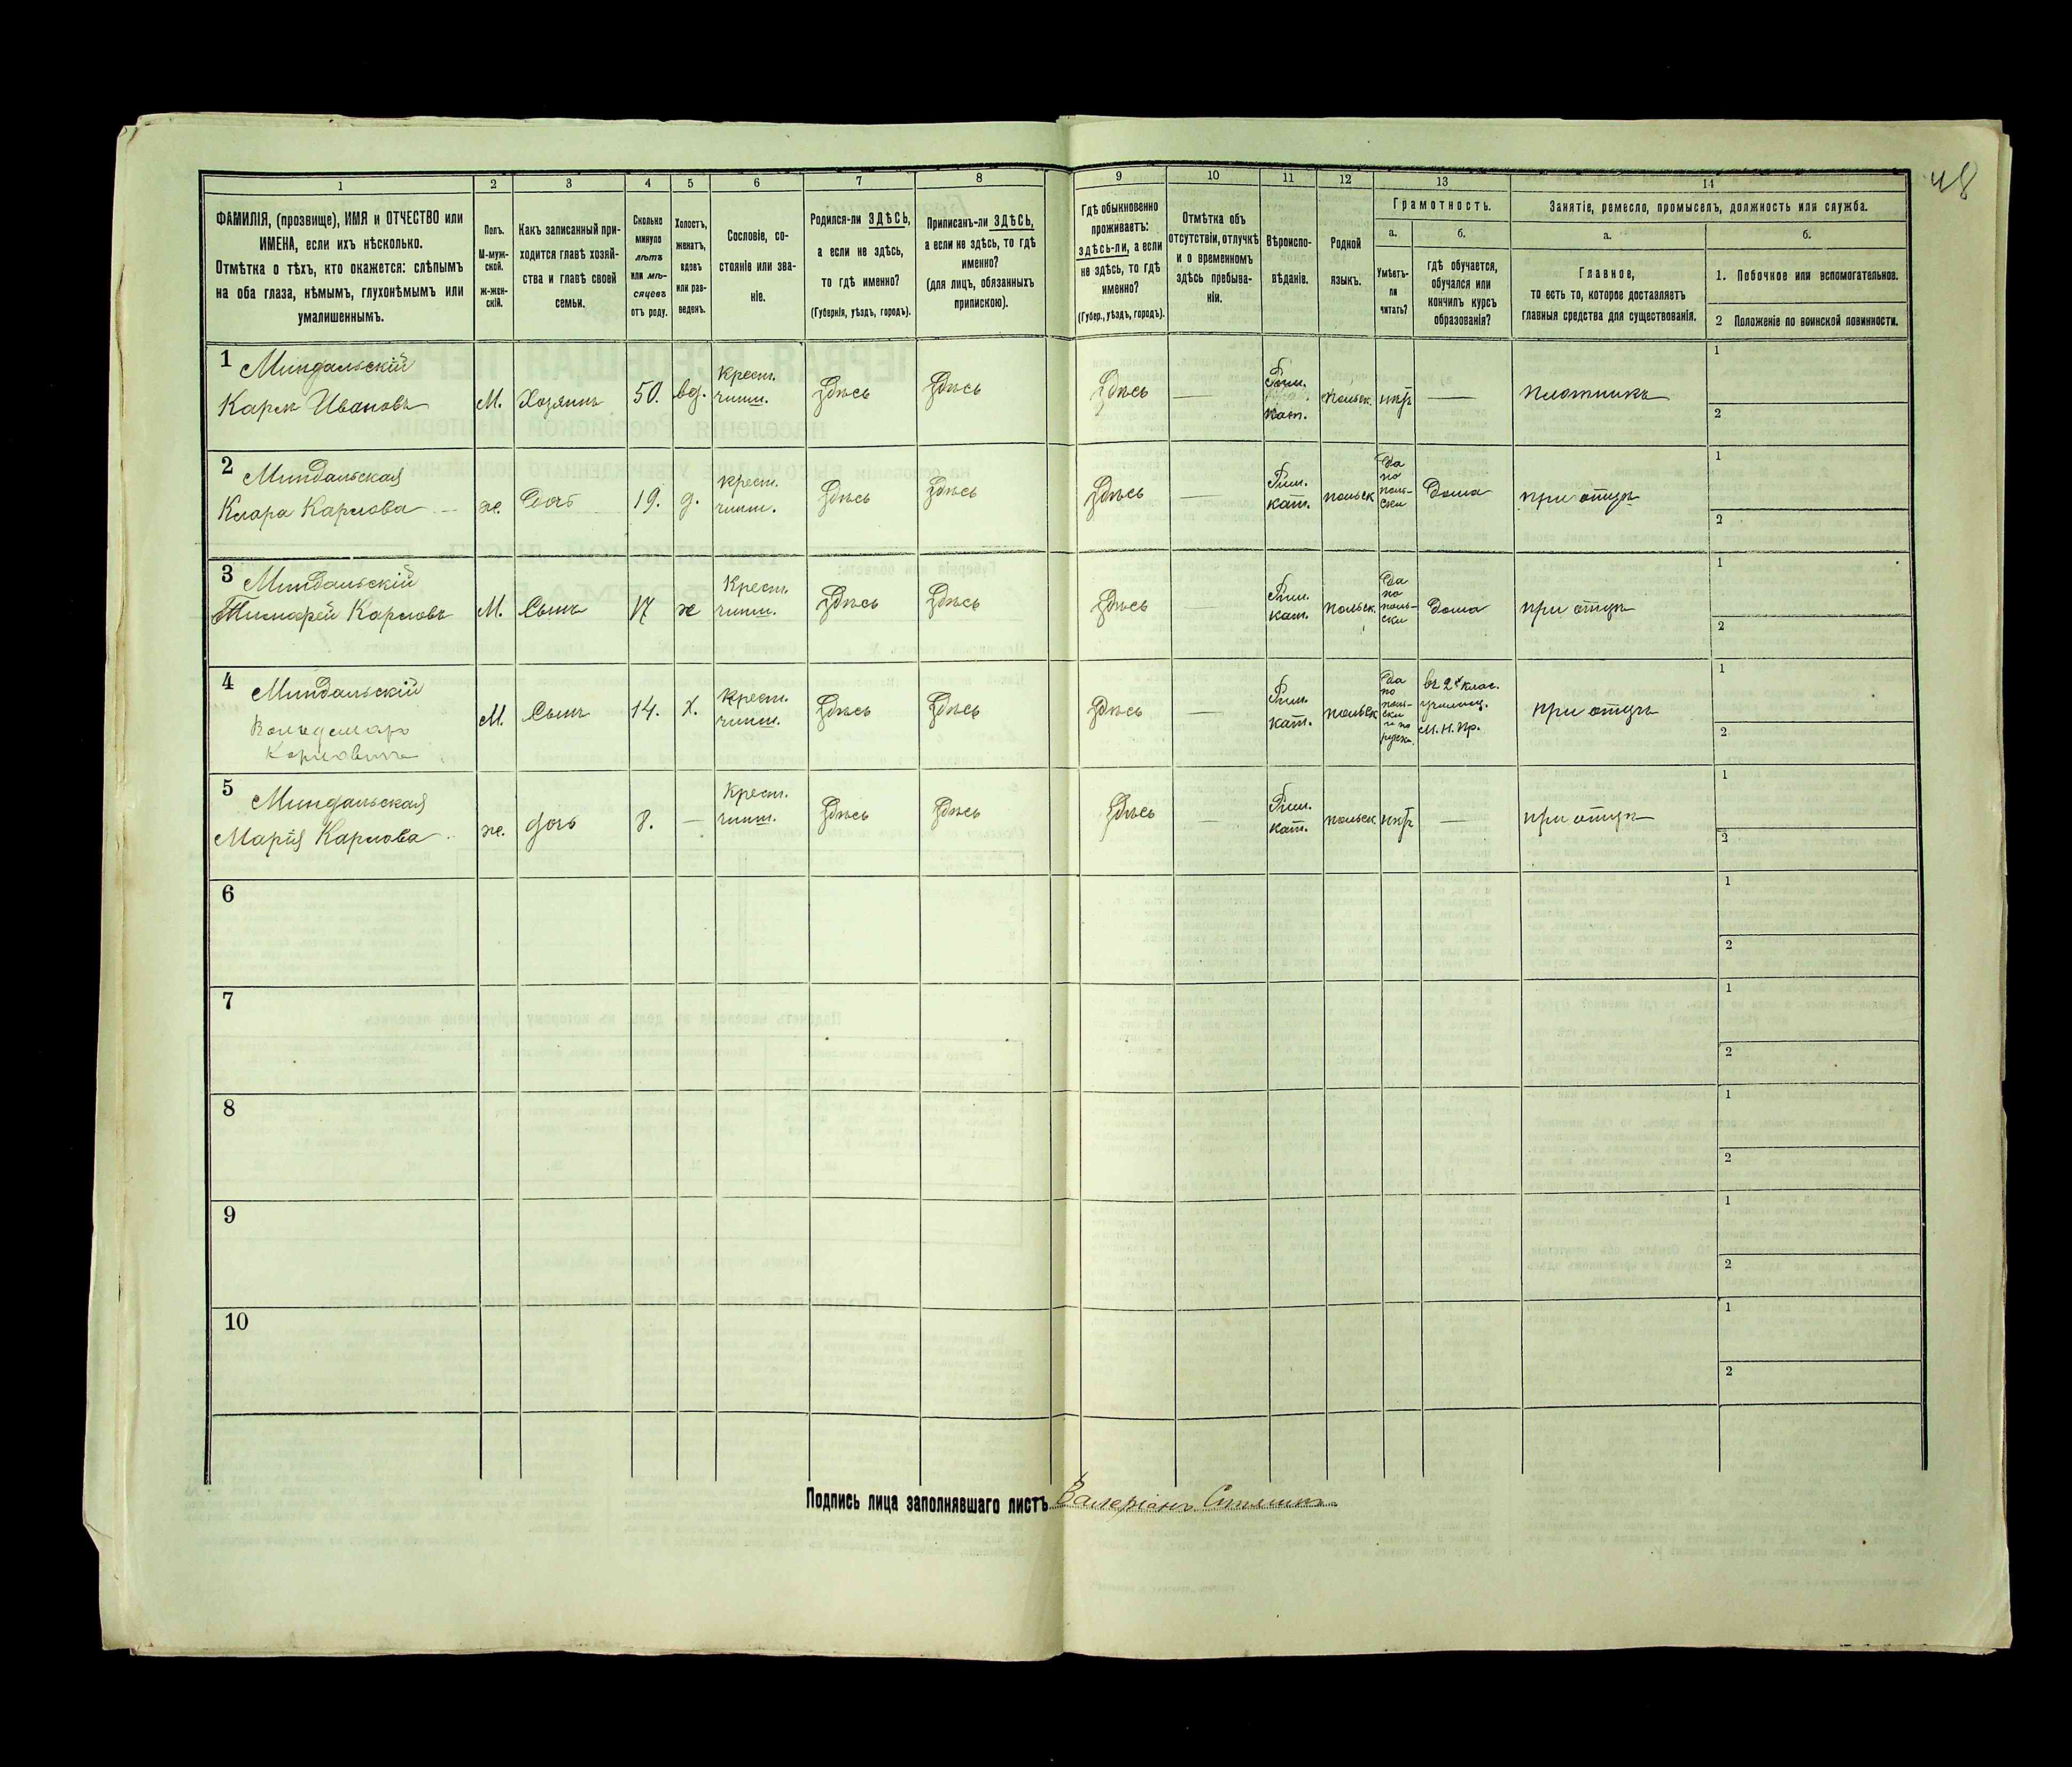 48
1 2 3 4 5 6 7 8 9 10 11 12 13 14
ФАМИЛІЯ, (прозвище), ИМЯ и ОТЧЕСТВО или
ИМЕНА, если ихъ нѣсколько.
Отмѣтка о тѣхъ, кто окажется: слѣпымъ
на оба глаза, нѣмымъ, глухонѣмымъ или
умалишеннымъ.
Полъ.
М-муж-
ской.
Ж-жен-
скій.
Какъ записанный при-
ходится главѣ хозяй-
ства и главѣ своей
семьи.
Сколько
минуло
лѣтъ
или мѣ-
сяцевъ
отъ роду.
Холостъ,
женатъ,
вдовъ
или раз-
веденъ.
Сословіе, со-
стояніе или зва-
ніе.
Родился-ли ЗДѢСЬ,
а если не здѣсь,
то гдѣ именно?
(Губернія, уѣздъ, городъ).
Приписанъ-ли ЗДѢСЬ,
а если не здѣсь, то гдѣ
именно?
(для лицъ, обязанныхъ
припискою).
Гдѣ обыкновенно
проживаетъ:
здѣсь-ли, а если
не здѣсь, то гдѣ
именно?
(Губер., уѣздъ, городъ).
Отмѣтка объ
отсутствіи, отлучкѣ
и о временномъ
здѣсь пребыва-
ніи.
Вѣроиспо-
вѣданіе.
Родной
языкъ.
Грамотность.
а.
Умѣетъ-
ли
читать?
б.
гдѣ обучается,
обучался или
кончилъ курсъ
образованія?
Занятіе, ремесло, промыселъ, должность или служба.
а.
Главное,
то есть то, которое доставляетъ
главныя средства для существованія.
б.
1. Побочное или вспомогательное.
2 Положеніе по воинской повинности.
1 Миндальскій
Карлъ Ивановъ
М.
Хозяинъ
50.
вд.
Крест.
Здѣсь
Здѣсь
Здѣсь
—
Рим.
кат.
польск.
нѣтъ
—
плотникъ
1
2
2 Миндальская
Клара Карлова
ж.
Дочь
19.
д.
Крест.
Здѣсь
Здѣсь
Здѣсь
—
Рим.
кат.
польск
Да
по
поль-
ски
Дома
при отцѣ
1
2
3 Миндальскій
Карловъ
М.
Сынъ
17
х
Крест.
Здѣсь
Здѣсь
Здѣсь
—
Рим.
кат.
польск.
Да
по
поль-
ски
Дома
при отцѣ
1
2
4 Миндальскій
Вольдемаръ
Карловичъ
М.
Сынъ
14.
х.
Крест.
Здѣсь
Здѣсь
Здѣсь
—
Рим.
кат.
польск
Да
по
поль-
ски
и по
русски
въ 2х клас.
училищ.
М. Н. Пр.
при отцѣ
1
2
5 Миндальская
Марія Карлова
ж.
дочь
8.
—
Крест.
Здѣсь
Здѣсь
Здѣсь
—
Рим.
кат.
польск.
нѣтъ
—
при отцѣ
1
2
6
1
2
7
1
2
8
1
2
9
1
2
10
1
2
Подпись лица заполнявшаго листъ Валеріанъ